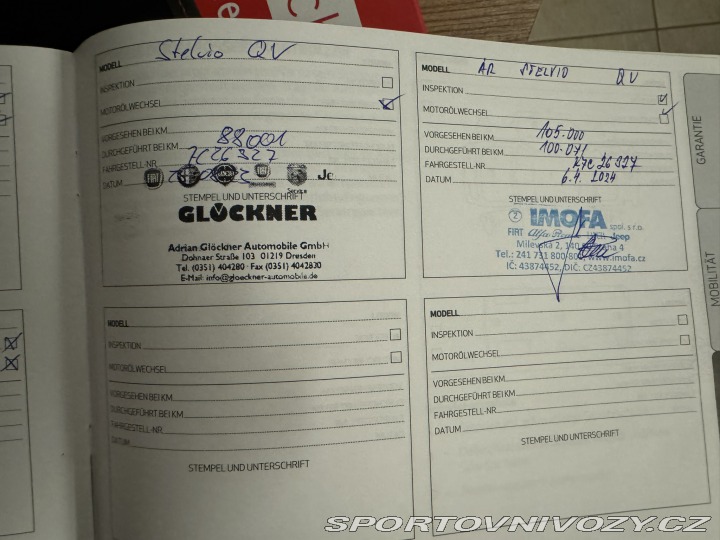 MODELL Stelvio QV
INSPEKTION
MOTORÖLWECHSEL
VORGESEHEN BEI KM
DURCHGEFÜHRT BEI KM 88001
FAHRGESTELL-NR. 7C26327
DATUM
FIAT
Service
STEMPEL UND UNTERSCHRIFT
GLÖCKNER
Adrian Glöckner Automobile GmbH
Dohnaer Straße 103 01219 Dresden
Tel. (0351) 404280 · Fax (0351) 4042830
E-Mail: info@gloeckner-automobile.de
MODELL AR STELVIO QV
INSPEKTION
MOTORÖLWECHSEL
VORGESEHEN BEI KM 105.000
DURCHGEFÜHRT BEI KM 100.071
FAHRGESTELL-NR. 27C26327
DATUM 6.4.2024
STEMPEL UND UNTERSCHRIFT
2 IMOFA spol. s r.o.
FIAT Alfa Romeo Jeep
Milevská 2, 140 Praha 4
Tel.: 241 731 800 www.imofa.cz
IČ: 43874452, DIČ: CZ43874452
MODELL
INSPEKTION
MOTORÖLWECHSEL
VORGESEHEN BEI KM
DURCHGEFÜHRT BEI KM
FAHRGESTELL-NR.
DATUM
STEMPEL UND UNTERSCHRIFT
MODELL
INSPEKTION
MOTORÖLWECHSEL
VORGESEHEN BEI KM
DURCHGEFÜHRT BEI KM
FAHRGESTELL-NR.
DATUM
STEMPEL UND UNTERSCHRIFT
GARANTIE
MOBILITÄT
SPORTOVNIVOZY.CZ